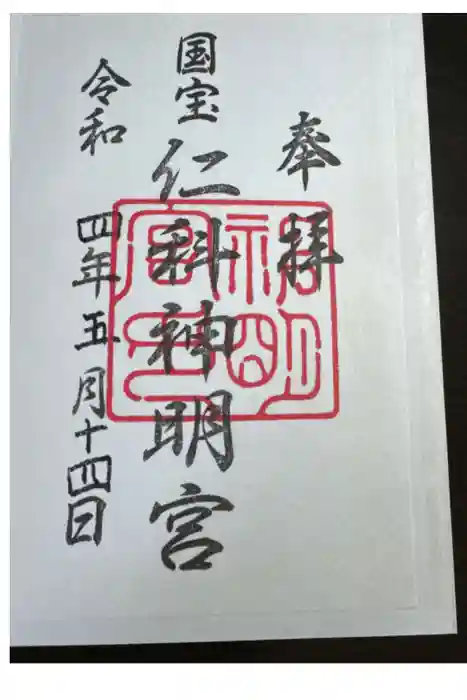 奉拝
国宝 仁科神明宮
令和四年五月十四日